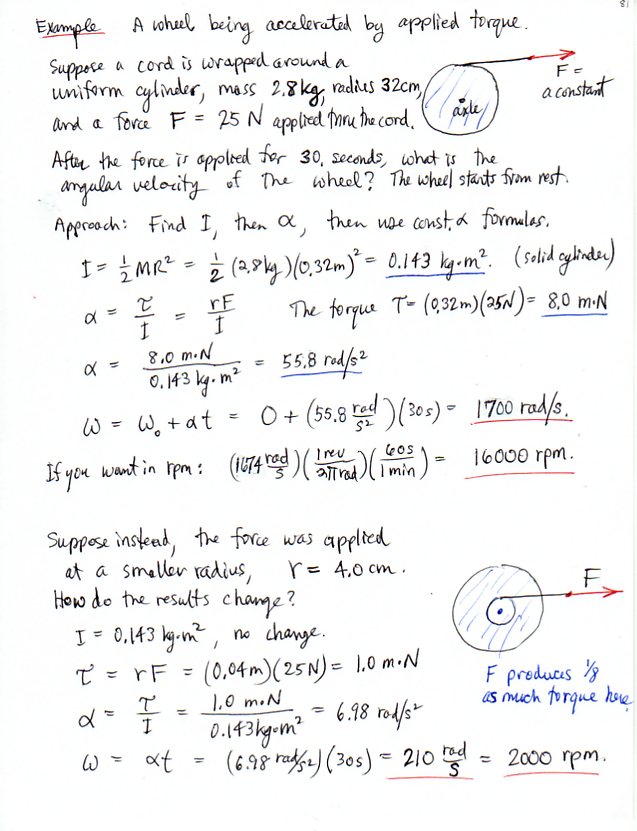 81
Example A wheel being accelerated by applied torque.
Suppose a cord is wrapped around a
uniform cylinder, mass 2.8kg, radius 32cm,
and a force F = 25 N applied thru the cord.
F =
a constant
axle
After the force is applied for 30. seconds, what is the
angular velocity of The wheel? The wheel starts from rest.
Approach: Find I, then α, then use const. α formulas.
I = ½MR² = ½ (2.8kg)(0.32m)² = 0.143 kg·m². (solid cylinder)
α = τ/I = rF/I The torque τ = (0.32m)(25N) = 8.0 m·N
α = 8.0 m·N / 0.143 kg·m² = 55.8 rad/s²
ω = ω₀ + αt = 0 + (55.8 rad/s²)(30s) = 1700 rad/s.
If you want in rpm: (1674 rad/s)(1 rev/2π rad)(60s/1 min) = 16000 rpm.
Suppose instead, the force was applied
at a smaller radius, r = 4.0 cm.
How do the results change?
I = 0.143 kg·m², no change.
τ = rF = (0.04m)(25N) = 1.0 m·N
α = τ/I = 1.0 m·N / 0.143kg·m² = 6.98 rad/s²
ω = αt = (6.98 rad/s²)(30s) = 210 rad/s = 2000 rpm.
F
F produces 1/8
as much torque here.